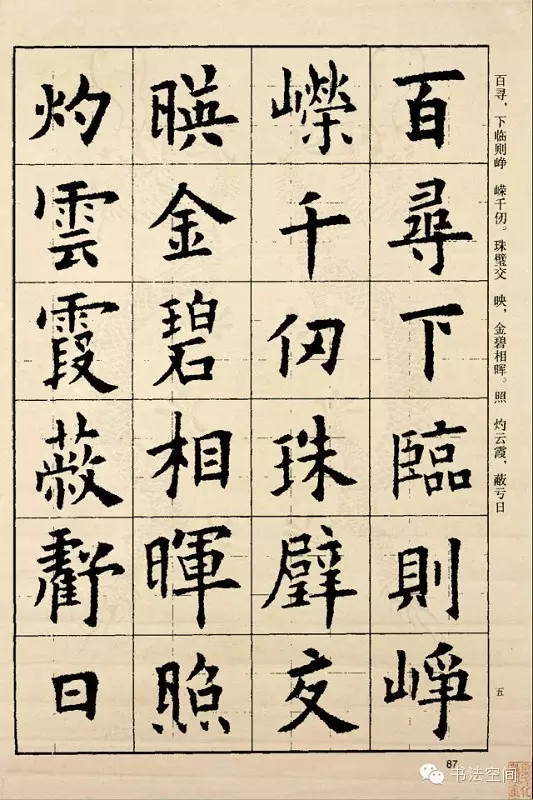 百尋下臨則崢
嶸千仞珠璧交
暎金碧相暉照
灼雲霞蔽虧日
百寻，下临则峥　嵘千仞。珠璧交　映，金碧相晖。照　灼云霞，蔽亏日
五
87
书法空间